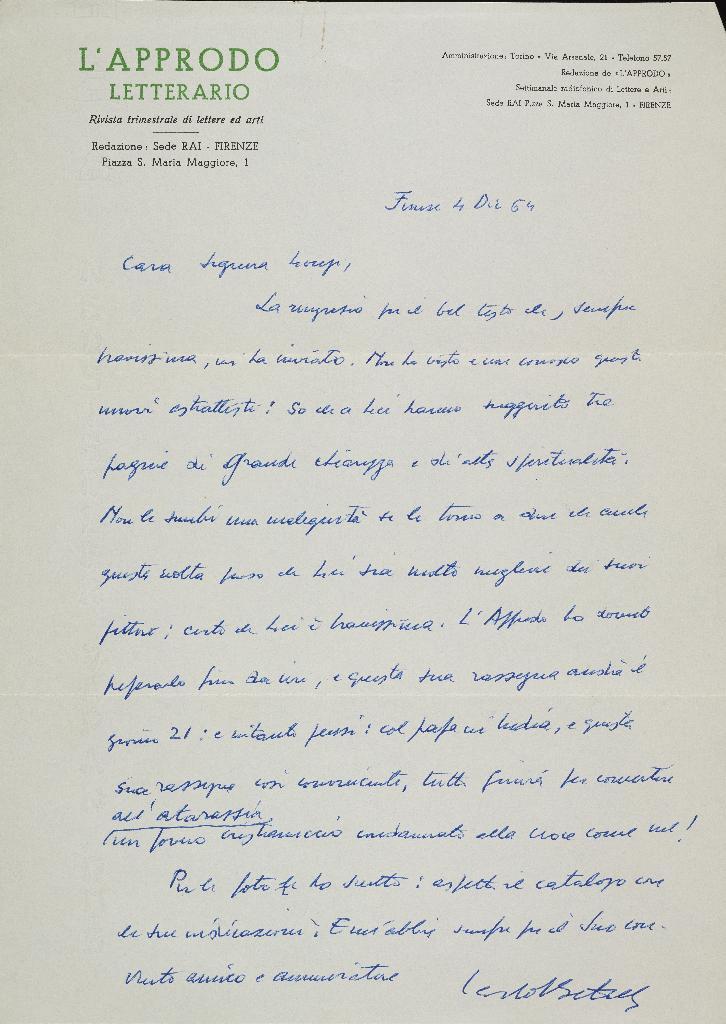 L'APPRODO
LETTERARIO
Rivista trimestrale di lettere ed arti
Redazione: Sede RAI - FIRENZE
Piazza S. Maria Maggiore, 1
Amministrazione: Torino - Via Arsenale, 21 - Telefono 57.57
Redazione de «L'APPRODO»
Settimanale radiofonico di Lettere e Arti:
Sede RAI P.zza S. Maria Maggiore, 1 - FIRENZE
Firenze 4 Dic 64
Cara Signora
La ringrazio per il bel testo che, sempre
bravissima, mi ha inviato. Non ho visto e non conosco questi
nuovi astrattisti: So che a Lei hanno suggerito tre
pagine di grande chiarezza e di alta spiritualità.
Non le sembri una malignità se le torno a dire che anche
questa volta penso che Lei sia molto migliore dei suoi
pittori; certo che Lei è bravissima. L'Approdo ho dovuto
prepararlo fin da ieri, e questa sua rassegna andrà il
giorno 21: e intanto pensi: col papa in India, e questa
sua rassegna così convincente, tutti finirà per convertire
all'atarassia
un povero cristianuccio condannato alla croce come me!
Per le foto ho scritto: aspetti il catalogo con
le sue indicazioni. E mi abbia sempre per il Suo con-
vinto amico e ammiratore
Carlo Betocchi